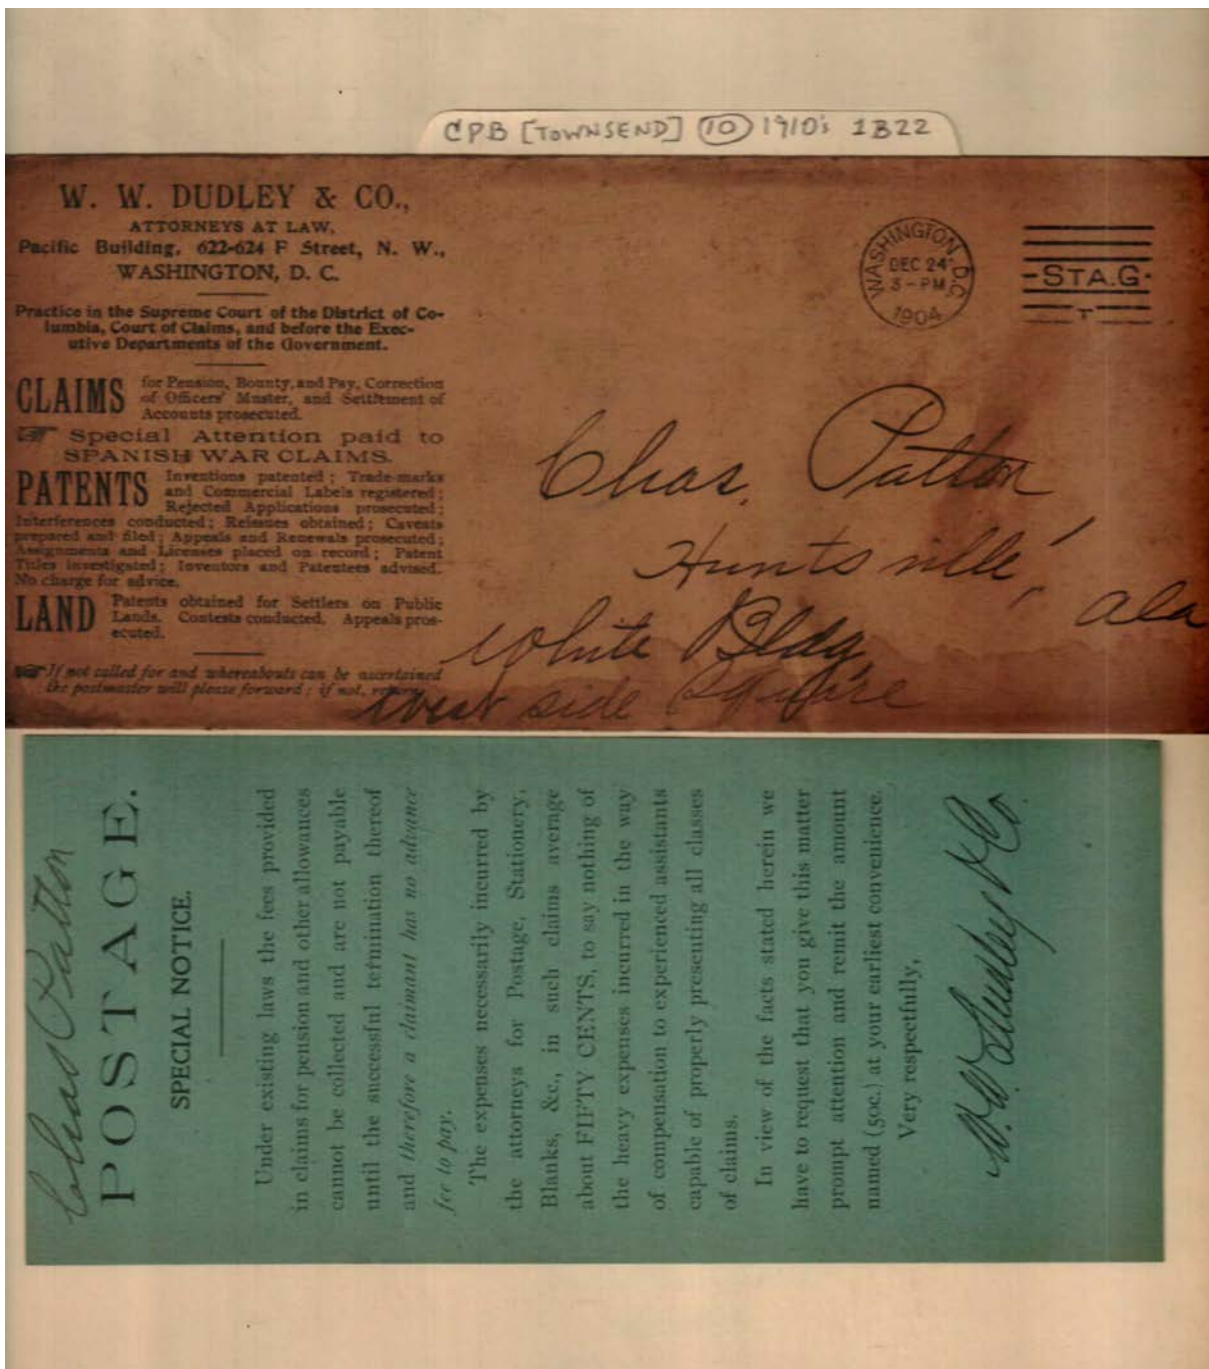 CPB [TOWNSEND] (10) 1910's 1B22
W. W. DUDLEY & CO.,
ATTORNEYS AT LAW,
Pacific Building, 622-624 F Street, N. W.,
WASHINGTON, D. C.
Practice in the Supreme Court of the District of Co-
lumbia, Court of Claims, and before the Exec-
utive Departments of the Government.
CLAIMS for Pension, Bounty, and Pay, Correction
of Officers' Muster, and Settlement of
Accounts prosecuted.
☞ Special Attention paid to
SPANISH WAR CLAIMS.
PATENTS Inventions patented; Trade-marks
and Commercial Labels registered;
Rejected Applications prosecuted;
Interferences conducted; Reissues obtained; Caveats
prepared and filed; Appeals and Renewals prosecuted;
Assignments and Licenses placed on record; Patent
Titles investigated; Inventors and Patentees advised.
No charge for advice.
LAND Patents obtained for Settlers on Public
Lands. Contests conducted. Appeals pros-
ecuted.
☞ If not called for and whereabouts can be ascertained
the postmaster will please forward; if not,
WASHINGTON, D.C.
DEC 24
3-PM
1904
STA.G
T
Chas. Patton
Huntsville, Ala
White Bldg,
West side Square
Chas Patton
POSTAGE.
SPECIAL NOTICE.
Under existing laws the fees provided
in claims for pension and other allowances
cannot be collected and are not payable
until the successful termination thereof
and therefore a claimant has no advance
fee to pay.
The expenses necessarily incurred by
the attorneys for Postage, Stationery,
Blanks, &c., in such claims average
about FIFTY CENTS, to say nothing of
the heavy expenses incurred in the way
of compensation to experienced assistants
capable of properly presenting all classes
of claims.
In view of the facts stated herein we
have to request that you give this matter
prompt attention and remit the amount
named (50c.) at your earliest convenience.
Very respectfully,
W. W. Dudley & Co.